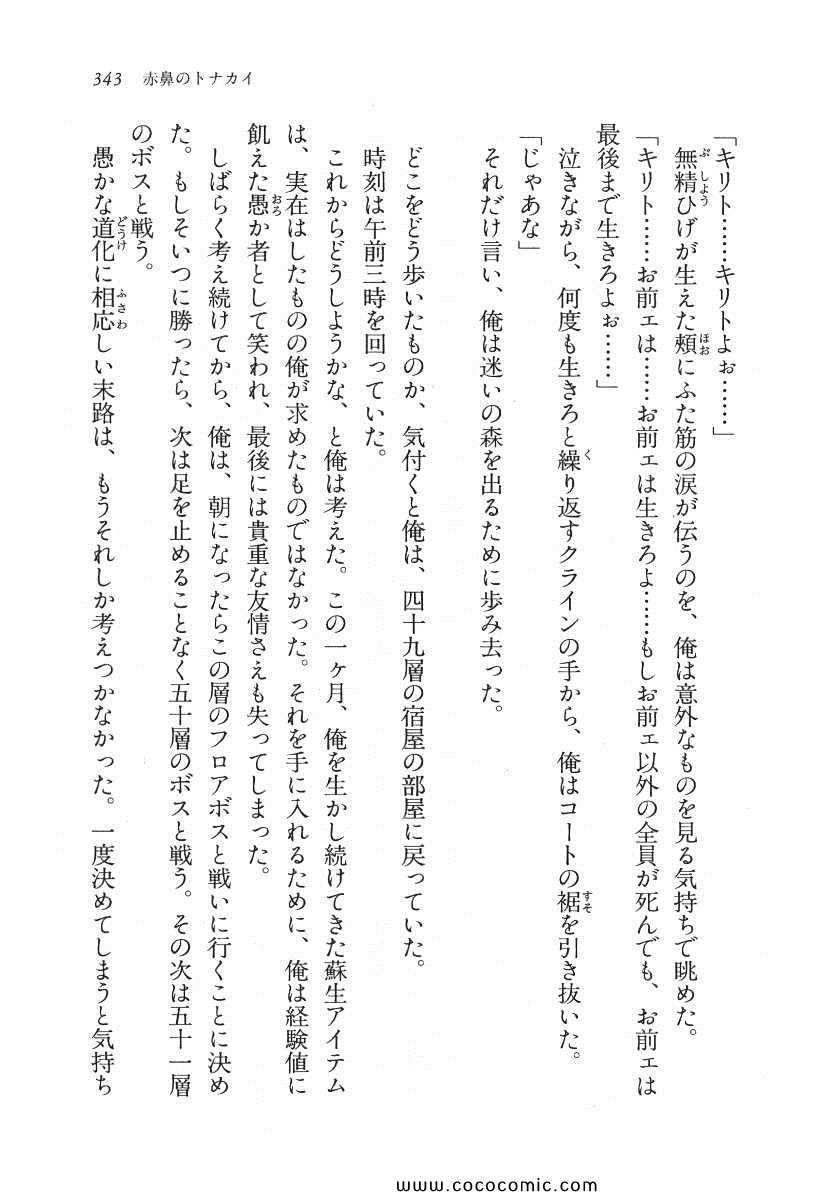 343 赤鼻のトナカイ
「キリト……キリトよぉ……」
無精ひげが生えた頬にふた筋の涙が伝うのを、俺は意外なものを見る気持ちで眺めた。
「キリト……お前ェは……お前ェは生きろよ……もしお前ェ以外の全員が死んでも、お前ェは
最後まで生きろよぉ……」
泣きながら、何度も生きろと繰り返すクラインの手から、俺はコートの裾を引き抜いた。
「じゃあな」
それだけ言い、俺は迷いの森を出るために歩み去った。
どこをどう歩いたものか、気付くと俺は、四十九層の宿屋の部屋に戻っていた。
時刻は午前三時を回っていた。
これからどうしようかな、と俺は考えた。この一ヶ月、俺を生かし続けてきた蘇生アイテム
は、実在はしたものの俺が求めたものではなかった。それを手に入れるために、俺は経験値に
飢えた愚か者として笑われ、最後には貴重な友情さえも失ってしまった。
しばらく考え続けてから、俺は、朝になったらこの層のフロアボスと戦いに行くことに決め
た。もしそいつに勝ったら、次は足を止めることなく五十層のボスと戦う。その次は五十一層
のボスと戦う。
愚かな道化に相応しい末路は、もうそれしか考えつかなかった。一度決めてしまうと気持ち
www.cococomic.com